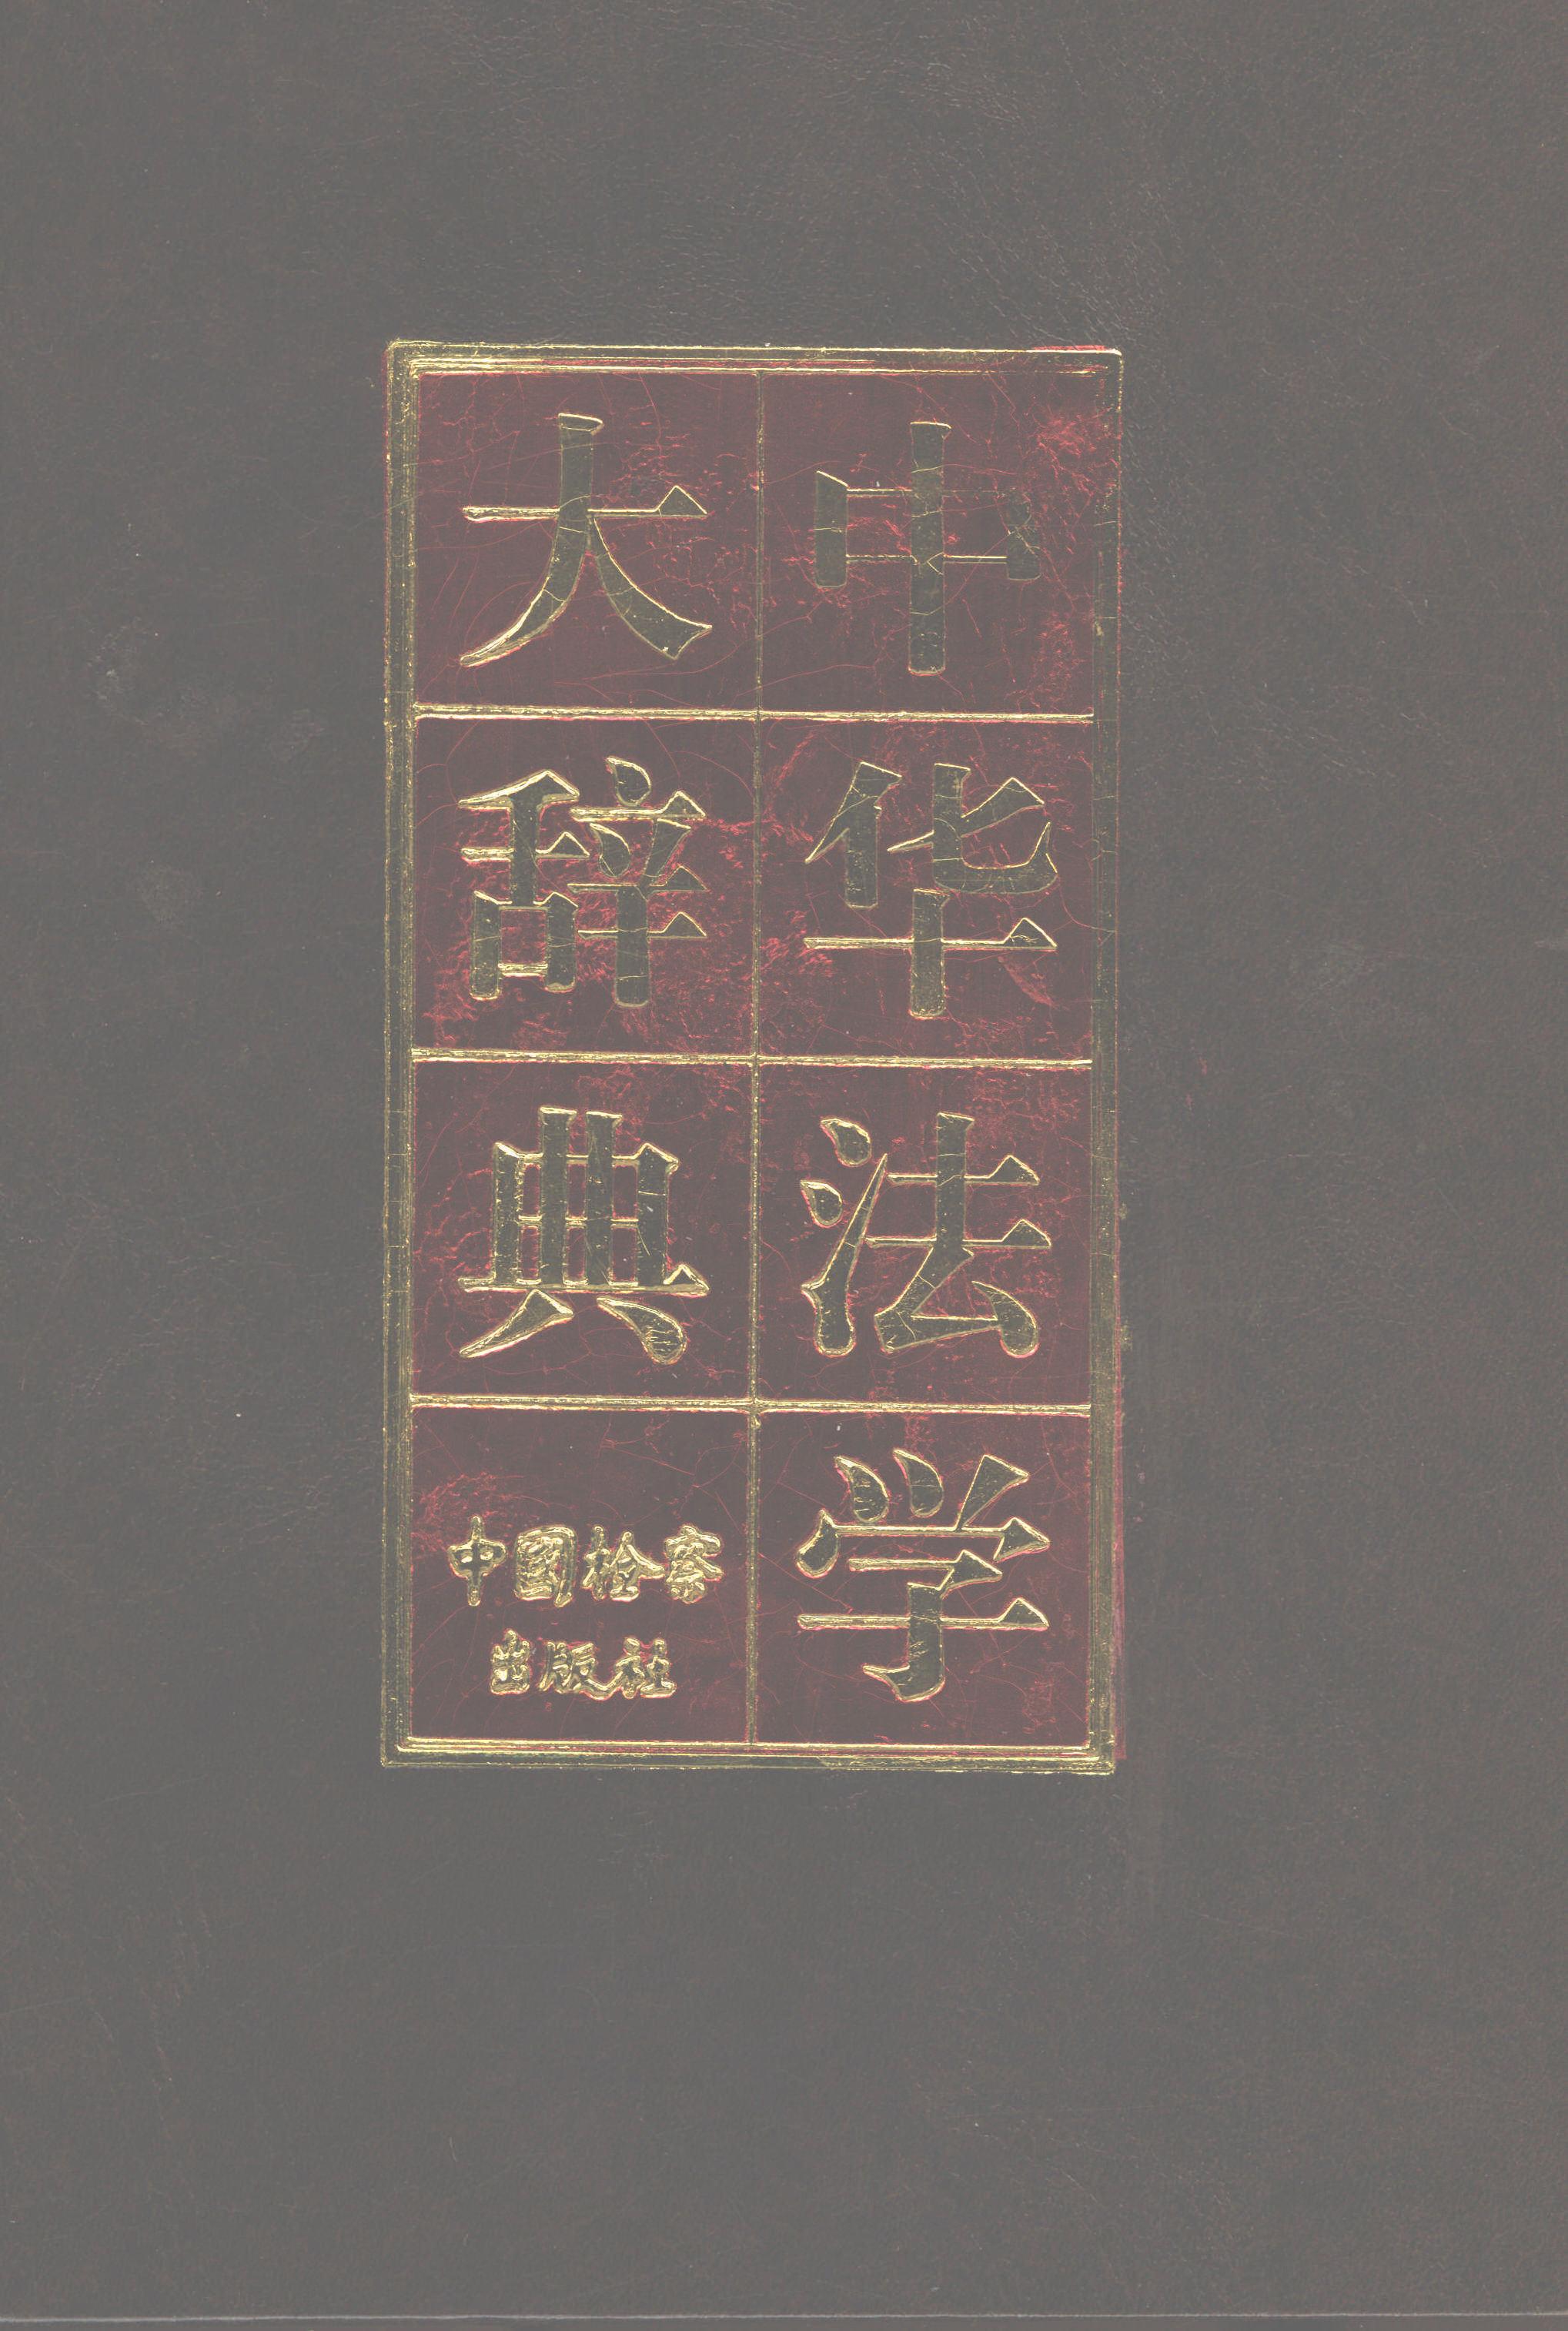 中华法学
大辞典
中國检察
出版社